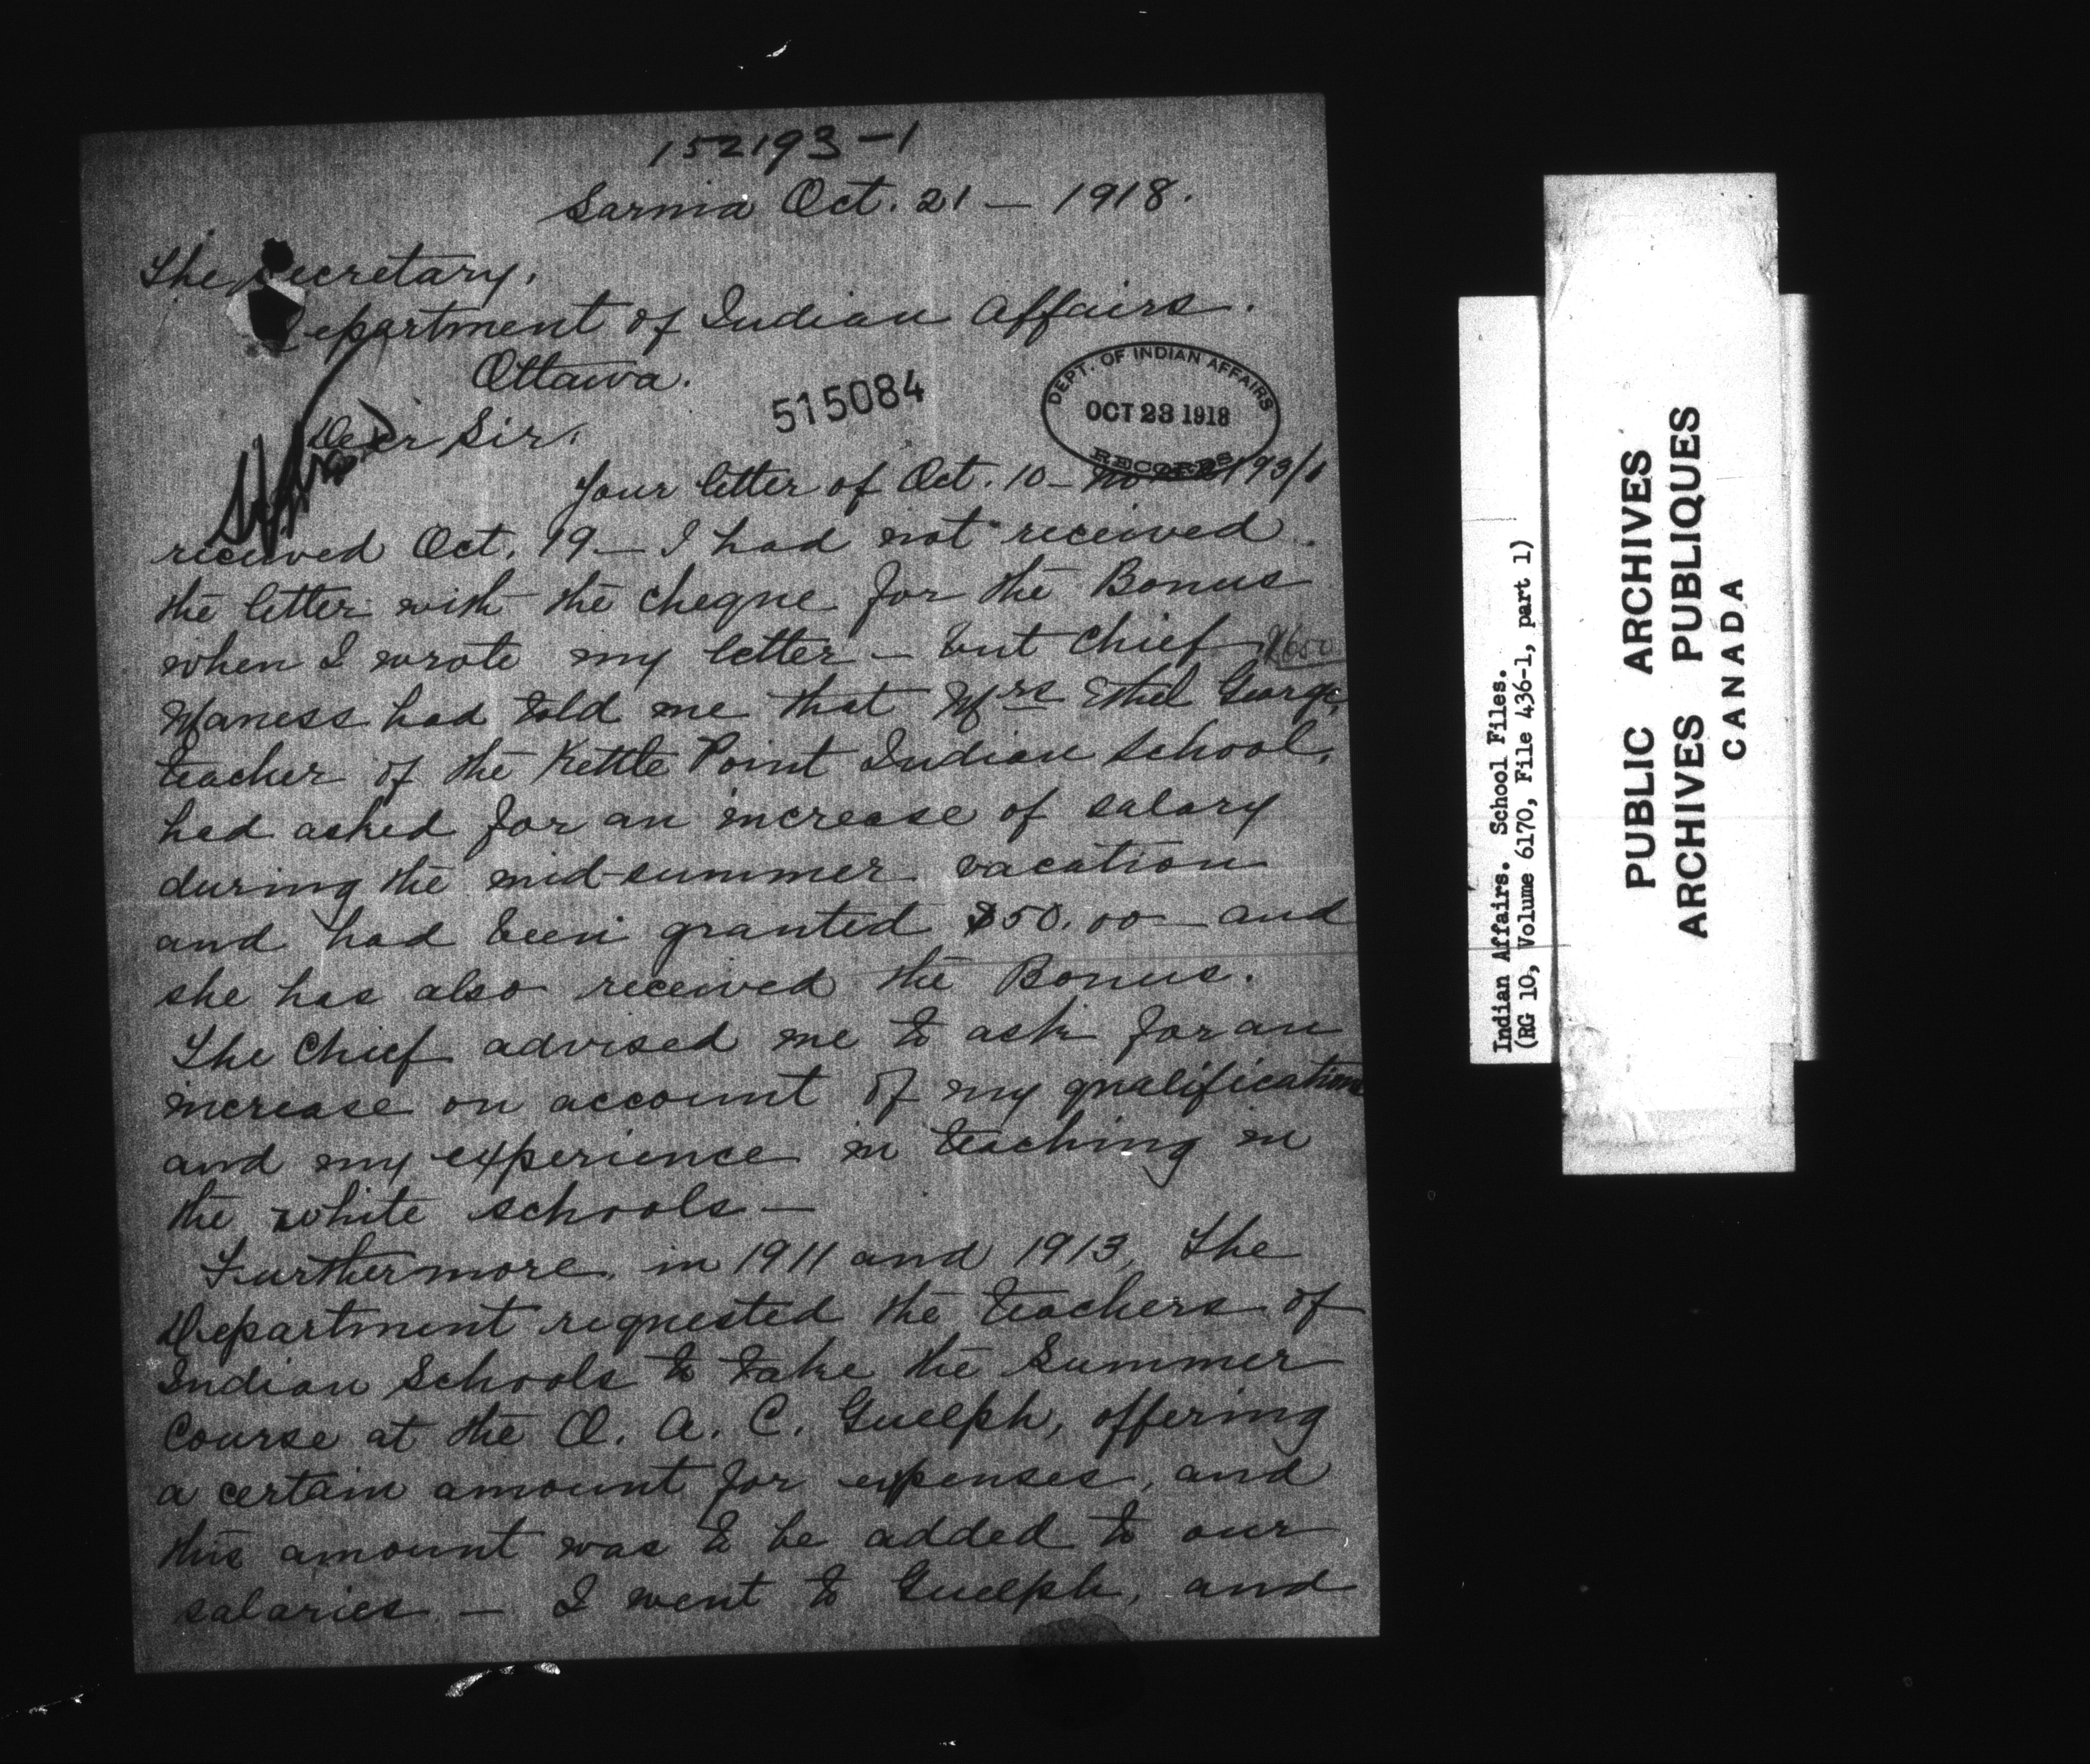 152193-1
Sarnia Oct. 21 — 1918.
The Secretary,
Department of Indian Affairs.
Ottawa.
515084
DEPT. OF INDIAN AFFAIRS
OCT 23 1918
RECORDS
Dear Sir,
Your letter of Oct. 10 — 193/1
received Oct. 19 — I had not received
the letter with the cheque for the Bonus
when I wrote my letter — but Chief
650
Maness had told me that Mrs Ethel George,
teacher of the Kettle Point Indian School,
had asked for an increase of salary
during the mid-summer vacation
and had been granted $50.00 — and
she has also received the Bonus.
The Chief advised me to ask for an
increase on account of my qualifications
and my experience in teaching in
the white schools —
Furthermore, in 1911 and 1913, the
Department requested the teachers of
Indian Schools to take the Summer
Course at the O. A. C. Guelph, offering
a certain amount for expenses, and
this amount was to be added to our
salaries. — I went to Guelph, and
Indian Affairs. School Files.
(RG 10, Volume 6170, File 436-1, part 1)
PUBLIC ARCHIVES
ARCHIVES PUBLIQUES
CANADA